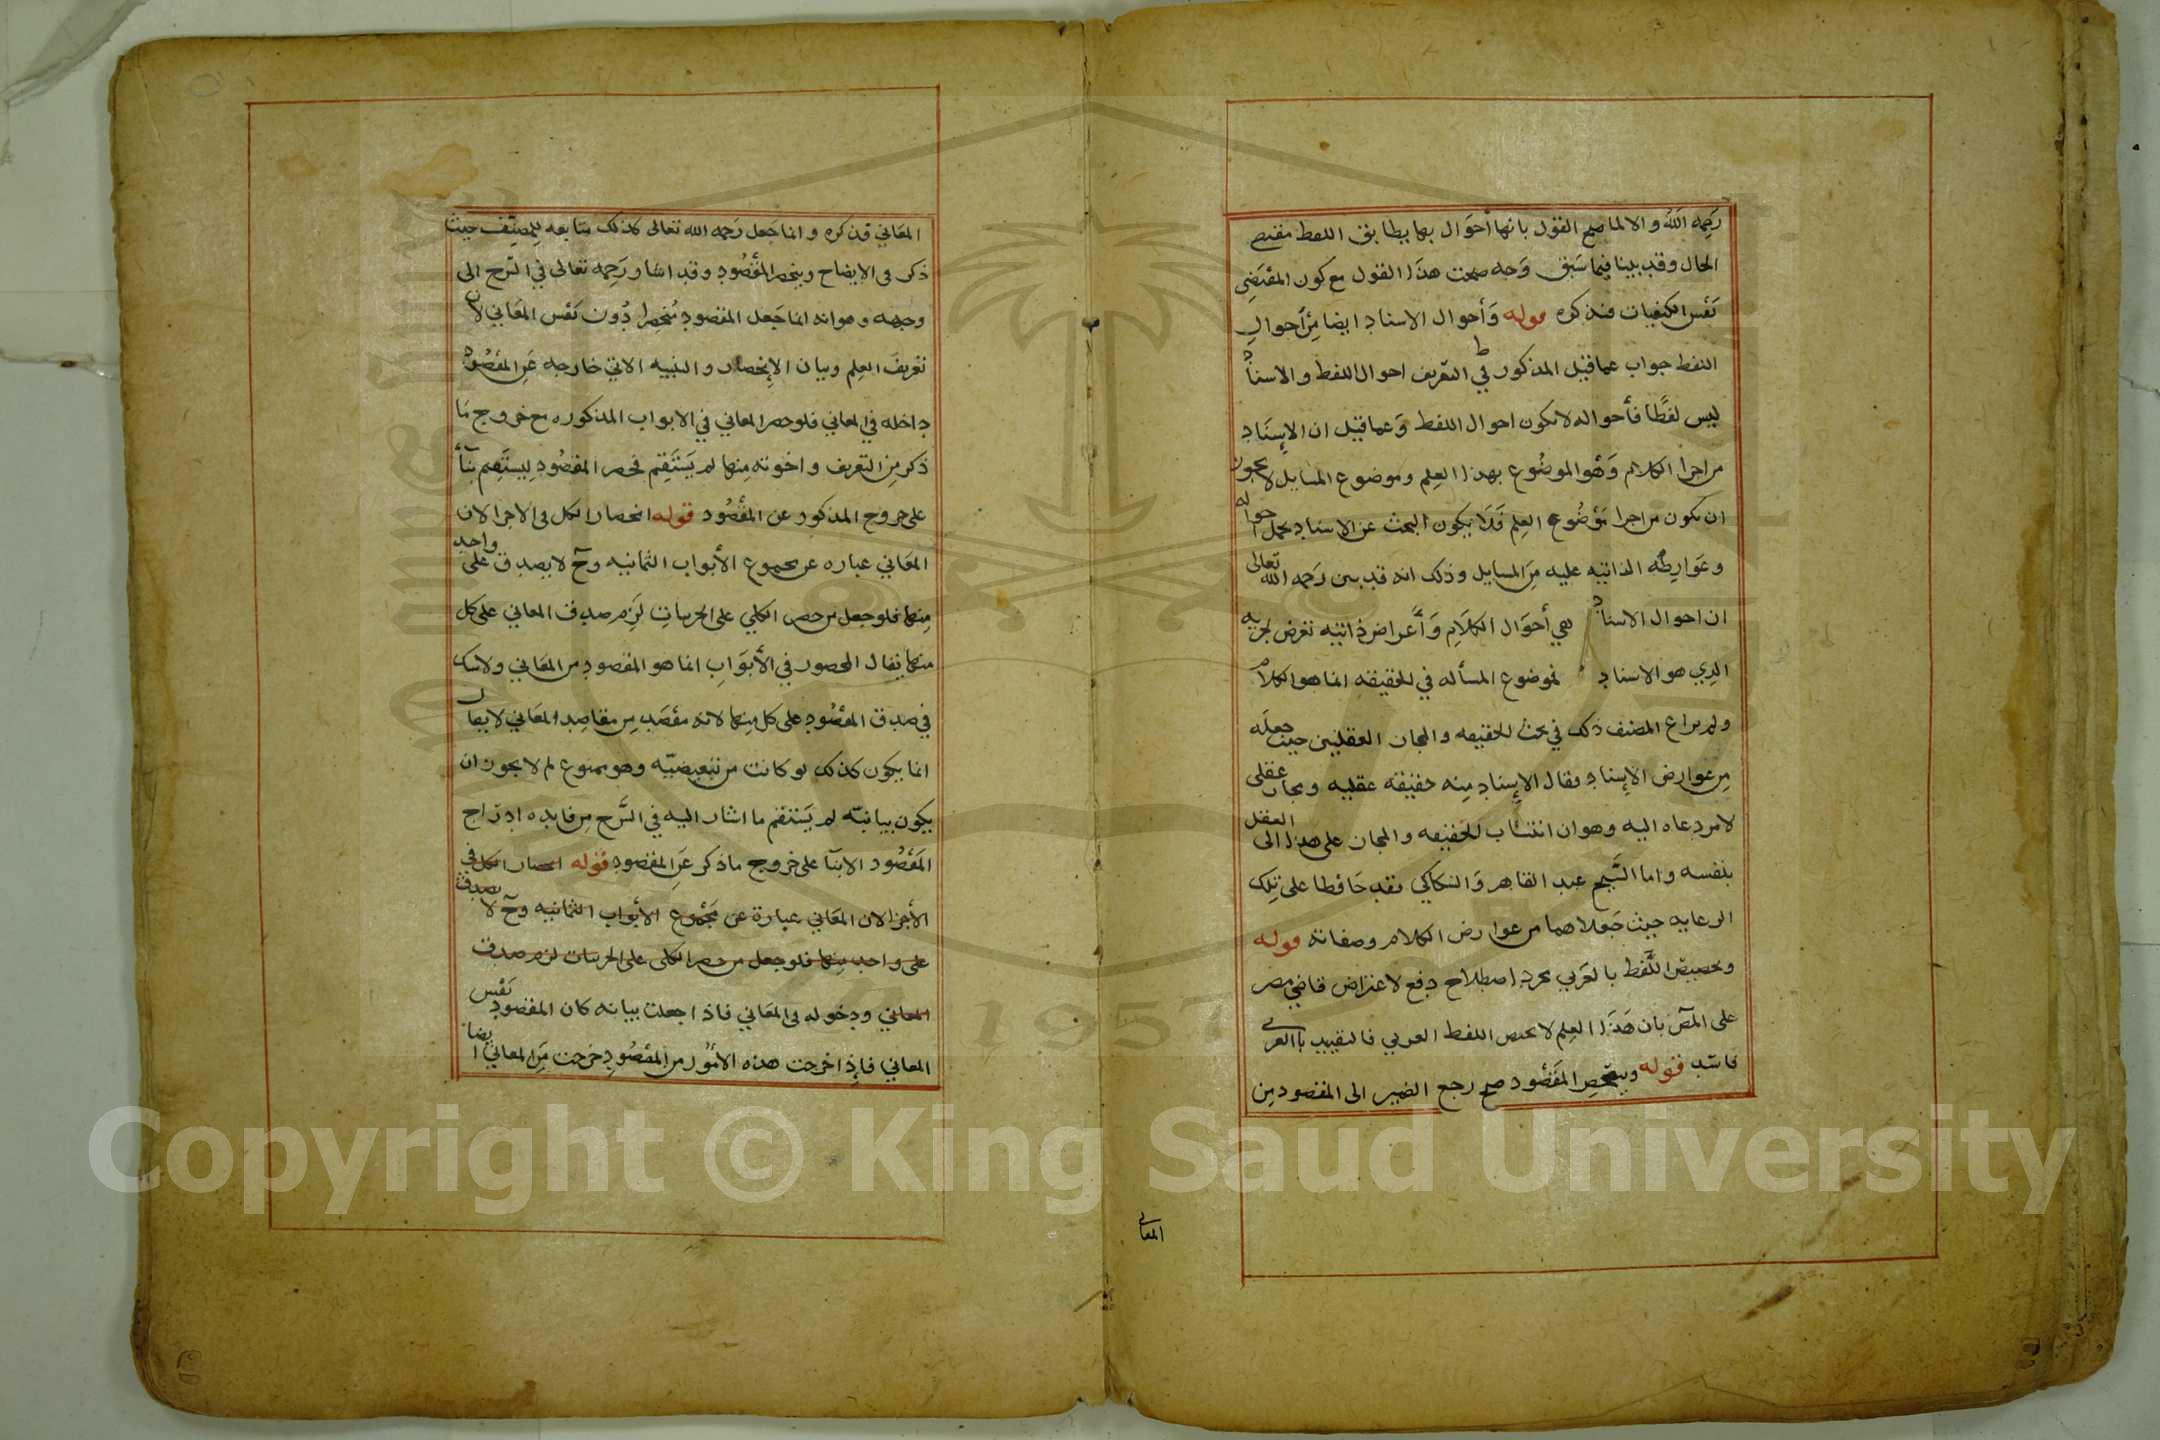 رَحِمَه الله والا لما صح القول بانها أحوَال بها يطابق اللفظ مقتضى
الحال وقد بينا فيما سَبَق وَجه صحت هذَا القول مع كون المقتَضِى
نَفْس الكيفيات فتذكره قوله وَأحوال الاسناد ايضا مِن أحوالِ
اللفظ جواب عما قيل المذكور في التعريف احوال اللفظ والاسناد
ليس لفظًا فأحواله لا تكون احوال اللفظ وَعما قيل ان الإسنَاد
من اجزا الكلام وَهُو الموضُوع بهذا العِلم وموضوع المسايل لا يجوز
ان تكون من اجزا مَوْضُوع العِلم فَلَا يكون البحث عن الاسناد بحمل احواله
وعَوارِضه الذاتيه عليه مِن المسايل وذلك انه قد بين رَحمه الله تعالى
ان احوال الاسناد هي أحوَال الكلَامِ وَأعراض ذاتيه تعرض لجزيه
الذِي هو الاسناد فموضوع المسأله في الحقيقه انما هو الكلام
ولم يراع المصنف ذلك في بحث الحقيقه والمجاز العقليين حيث جعلَه
مِن عوارض الإسناد فقال الإسناد مِنه حقيقة عقليه ومجاز عقلى
لامر دعاه اليه وهو ان انتسَاب الحقيقه والمجاز على هذا الى العقل
بنفسه واما الشَّيخ عبد القاهر وَالسكاكي فقد حَافظا على تِلك
الرعايه حيث جَعَلاهما من عوارض الكلام وصفاته قوله
وتخصيص اللَّفظ بالعَربي مجرد اصطلاح دفع لاعتراض قاضي مصر
على المصَ بان هَذَا العِلم لا يختص اللفظ العربي فالتقييد بالعربي
فاسد قوله وينحَصِر المقصُود صح رجع الضمير الى المقصود مِن
المعاني
المعَاني قد ذكره وانما جَعل رَحمه الله تعالى كذلك متابعه لِلمصنِّف حيث
ذكر فى الايضاح وينحصر المقْصُود وقد اشار رَحِمه تعالى في الشرح الى
وجهه وهو انه انما جَعل المقصود مُنحصرا دُون نَفْس المعَاني لان
تعْرِيفَ العِلم وبيان الإنحصَار والتنبيه الاتي خارجه عَن المقصُود
داخله في المعاني فلو حصر المعاني في الابواب المذكوره مع خروج مَا
ذكر مِن التعريف واخوته مِنها لم يَسْتَقِم فحصر المقصُود لِيستَقِم بنَاءً
على خروج المذكور عن المقْصُود قوله انحصار الكل فى الاجزا لان
المعَاني عباره عن مجموع الأبواب الثمانيه وحَ لا يصدق على واحد
مِنها فلو جعل من حصر الكلي على الجزيات لَزِم صدق المعاني على كل
منها يقال المحصور في الأبوَابِ انما هو المقصود من المعَاني ولا شك
في صدق المقصُود على كل مِنها لانه مقصَد مِن مقاصِد المعَاني لا يقال
انما يكون كذلك لو كانت من تبعيضيّه وهو ممنوع لم لا يجوز ان
يكون بيانيّه لم يَستقم ما اشار اليه في الشَّرح مِن فايده ادرَاج
المَقْصُود الابنَا على خروج ما ذكر عَن المقصود قوله انحصار الكل في
الأجزا لان المعَاني عبارة عن مَجْمُوع الأبواب الثمانيه وحَ لا يصدق
على واحد مِنها فلو جعل من حصر الكلى على الجزيات لزم صدق
المعاني ودخوله فى المعَاني فاذا جعلت بيانه كان المقصود نَفْس
المعاني فإذا خرجت هذه الامُور من المقصُودِ خرجت مِن المعاني ايضا